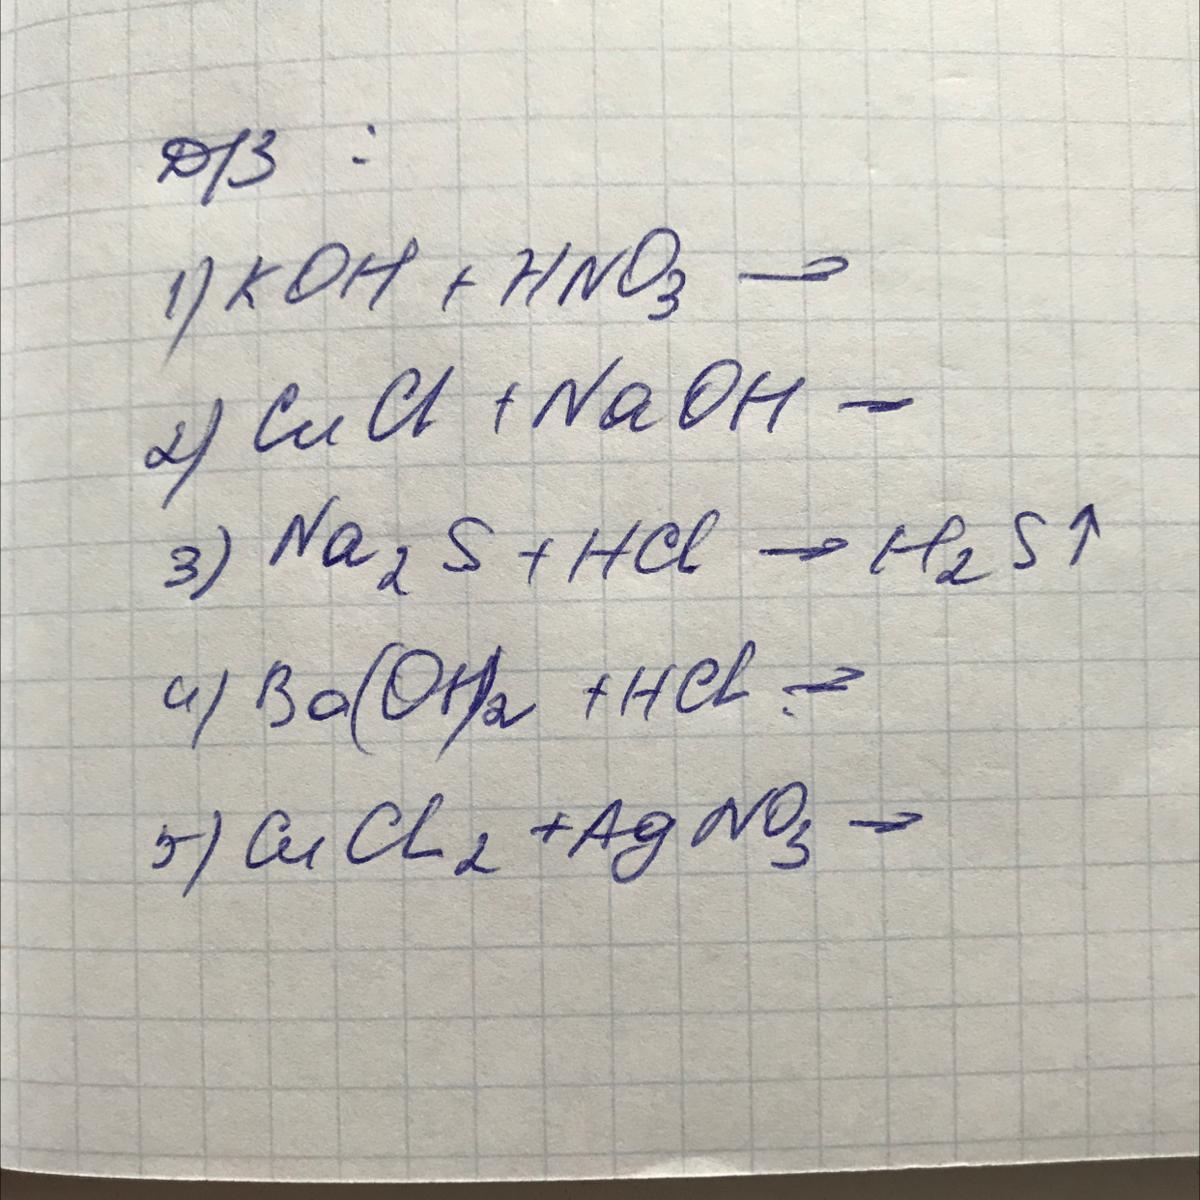 Д/З :
1) KOH + HNO₃ →
2) CuCl + NaOH –
3) Na₂S + HCl → H₂S↑
4) Ba(OH)₂ + HCl →
5) CuCl₂ + AgNO₃ →